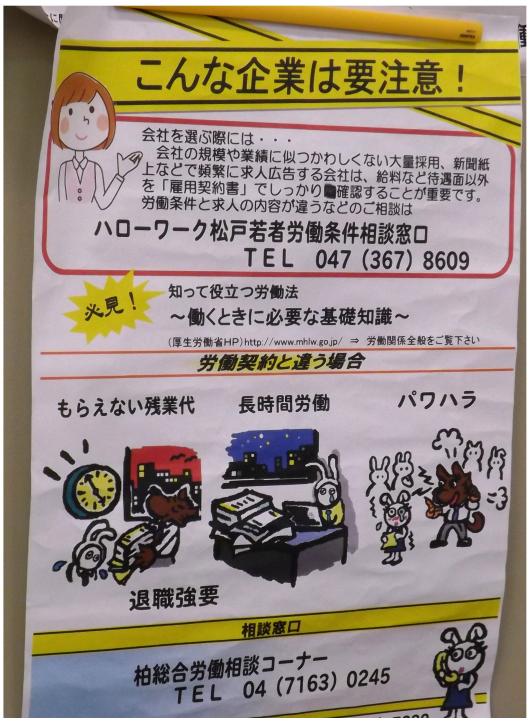 こんな企業は要注意！
会社を選ぶ際には・・・
会社の規模や業績に似つかわしくない大量採用、新聞紙
上などで頻繁に求人広告する会社は、給料など待遇面以外
を「雇用契約書」でしっかり確認することが重要です。
労働条件と求人の内容が違うなどのご相談は
ハローワーク松戸若者労働条件相談窓口
TEL 047（367）8609
必見！
知って役立つ労働法
～働くときに必要な基礎知識～
(厚生労働省HP)http://www.mhlw.go.jp/ ⇒ 労働関係全般をご覧下さい
労働契約と違う場合
もらえない残業代 長時間労働 パワハラ
退職強要
相談窓口
柏総合労働相談コーナー
TEL 04（7163）0245